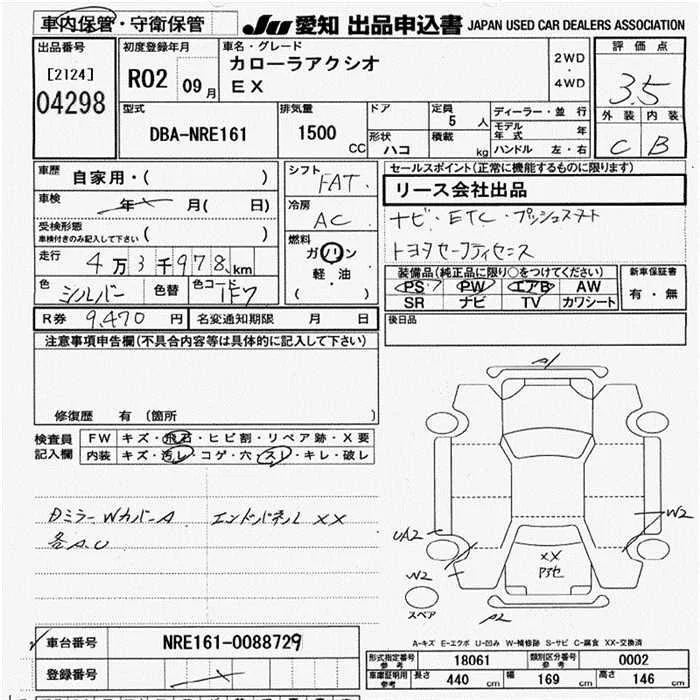 車内保管・守衛保管
JU 愛知 出品申込書 JAPAN USED CAR DEALERS ASSOCIATION
出品番号
[2124]
04298
初度登録年月
R02 09月
車名・グレード
カローラアクシオ
EX
2WD
・
4WD
評価点
3.5
外装 内装
C B
型式
DBA-NRE161
排気量
1500 CC
ドア
形状 ハコ
定員
5 人
積載
kg
ディーラー・並 行
モデル年式 年
ハンドル 左・右
車歴
自家用・( )
車検
年 月( 日)
受検形態
車検付きのみ記入して下さい ( )
走行 4万3千978km
色 シルバー 色替 色コード 1F7
シフト
FAT.
冷房
AC
燃料
ガソリン
軽・油
( )
セールスポイント(正常に機能するものに限ります)
リース会社出品
ナビ・ETC・プッシュスタート
トヨタセーフティセンス
装備品(純正品に限り○をつけてください)
PS PW エアB AW
SR ナビ TV カワシート
新車保証書
有・無
R券 9,470円 名変通知期限 月 日
後日品
注意事項申告欄(不具合内容等は具体的に記入して下さい)
修復歴 有 (箇所 )
検査員
記入欄
FW キズ・飛石・ヒビ割・リペア跡・X要
内装 キズ・汚レ・コゲ・穴・スレ・キレ・破レ
Dミラー Wカバー A エンドパネル XX
各A.U
A1
UA2
W2
W2
XX
スペア
A2
A-キズ E-エクボ U-凹み W-補修跡 S-サビ C-腐食 XX-交換済
車台番号 NRE161-0088729
登録番号
形式指定番号 参考 18061 類別区分番号 参考 0002
車庫証明用 参考 長さ 440 cm 幅 169 cm 高さ 146 cm